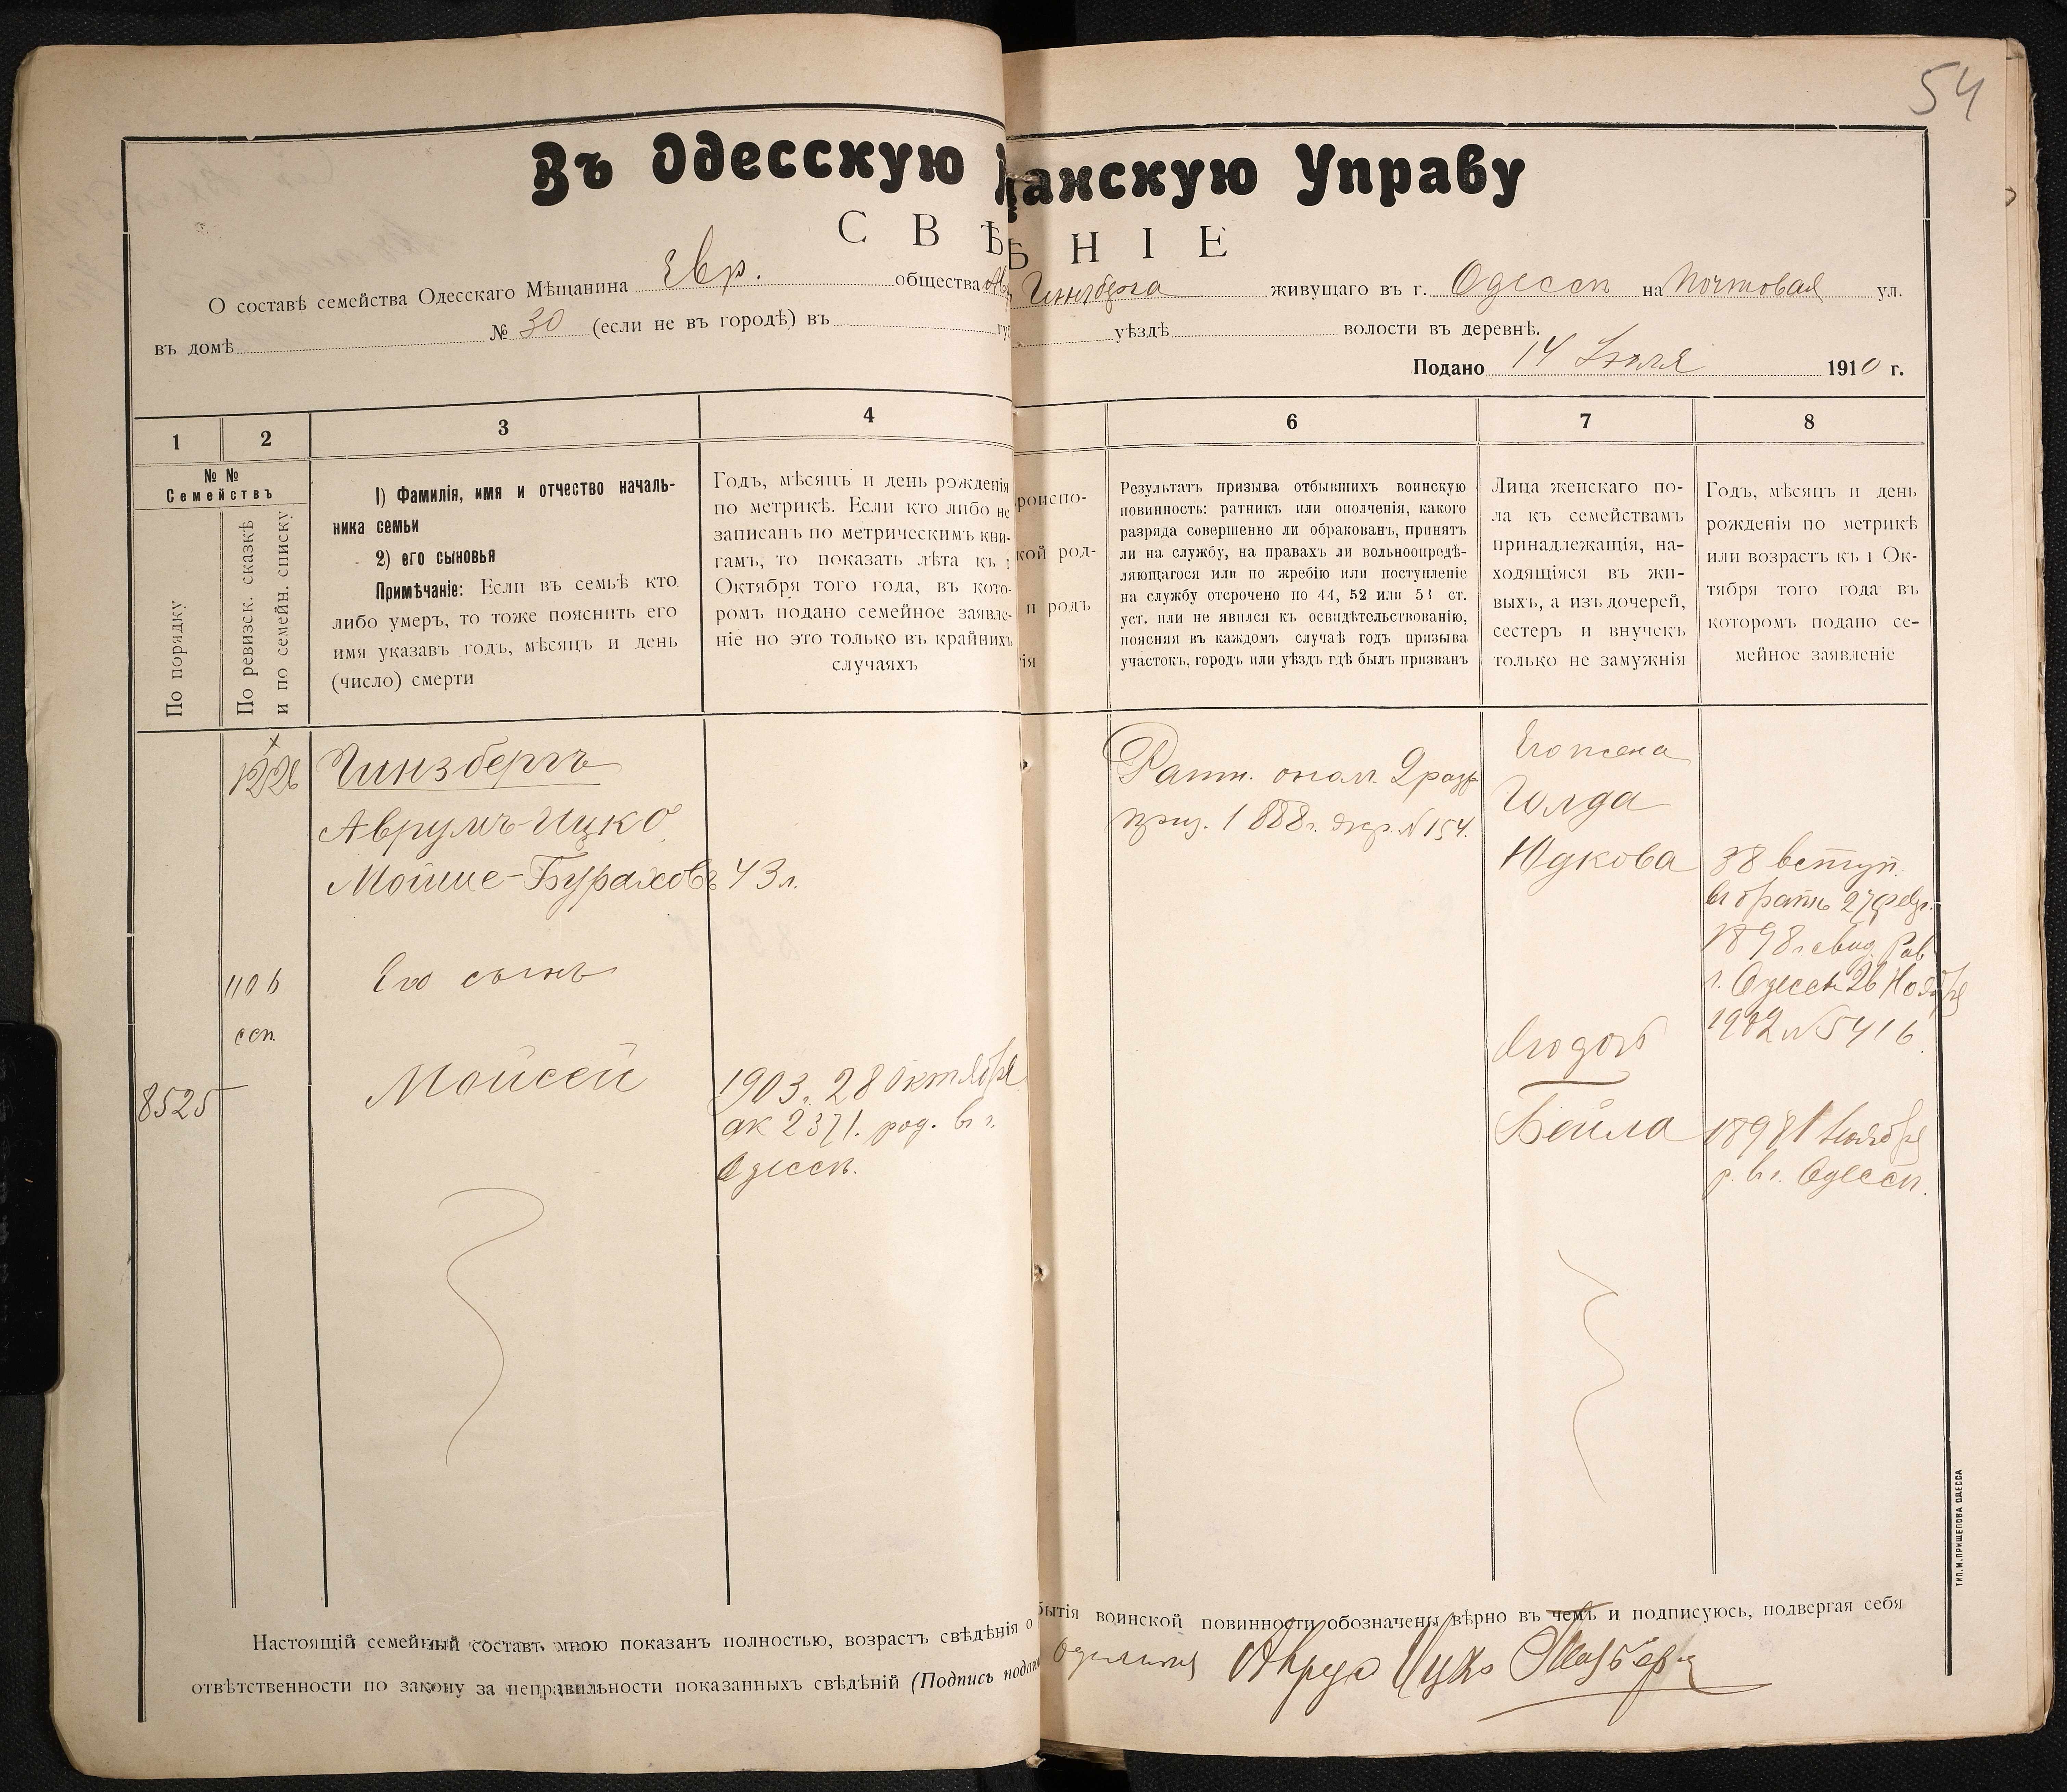 54
Въ Одесскую
анскую Управу
СВѢ
НІЕ
О составѣ семейства Одесскаго Мѣщанина Евр. общества
Гинзберга живущаго въ г. Одессѣ на Почтовая ул.
въ домѣ № 30 (если не въ городѣ) въ
уѣздѣ волости въ деревнѣ.
Подано 14 Іюля 1910 г.
1 2 3 4
6 7 8
№ №
Семействъ
По порядку
По ревизск. сказкѣ
и по семейн. списку
1) Фамилія, имя и отчество началь-
ника семьи
2) его сыновья
Примѣчаніе: Если въ семьѣ кто
либо умеръ, то тоже пояснить его
имя указавъ годъ, мѣсяцъ и день
(число) смерти
Годъ, мѣсяцъ и день рожденія
по метрикѣ. Если кто либо не
записанъ по метрическимъ кни-
гамъ, то показать лѣта къ 1
Октября того года, въ кото-
ромъ подано семейное заявле-
ніе но это только въ крайнихъ
случаяхъ
роиспо-
кой род-
и родъ
гія
Результатъ призыва отбывшихъ воинскую
повинность: ратникъ или ополченія, какого
разряда совершенно ли обракованъ, принятъ
ли на службу, на правахъ ли вольноопредѣ-
ляющагося или по жребію или поступленіе
на службу отсрочено по 44, 52 или 53 ст.
уст. или не явился къ освидѣтельствованію,
поясняя въ каждомъ случаѣ годъ призыва
участокъ, городъ или уѣздъ гдѣ былъ призванъ
Лица женскаго по-
ла къ семействамъ
принадлежащія, на-
ходящіяся въ жи-
выхъ, а изъ дочерей,
сестеръ и внучекъ
только не замужнія
Годъ, мѣсяцъ и день
рожденія по метрикѣ
или возрастъ къ 1 Ок-
тября того года въ
которомъ подано се-
мейное заявленіе
1226 Гинзбергъ
Аврумъ-Ицко
Мойше-Бураховъ 43 л.
1106 Его сынъ
ссп.
8525 Мойсей 1903 г. 28 Октября
ак 2371. род. въ г.
Одессѣ.
Ратн. опол. 2 разр
приз. 1888 г. жер. № 154.
Его жена
Голда
Юдкова 38 вступ.
въ бракъ 27 февр.
1898 г. свид. Рав.
г. Одессы 26 Ноября
1902 № 5416
Его дочь
Бейла 1898 1 Ноября
р. въ г. Одессѣ.
Настоящій семейный составъ мною показанъ полностью, возрастъ свѣдѣнія о
бытія воинской повинности обозначены вѣрно въ чемъ и подписуюсь, подвергая себя
отвѣтственности по закону за неправильности показанныхъ свѣдѣній (Подпись подаю
Аврум Ицко Гинзберг
ТИП. М. ПРИЩЕПОВА ОДЕССА